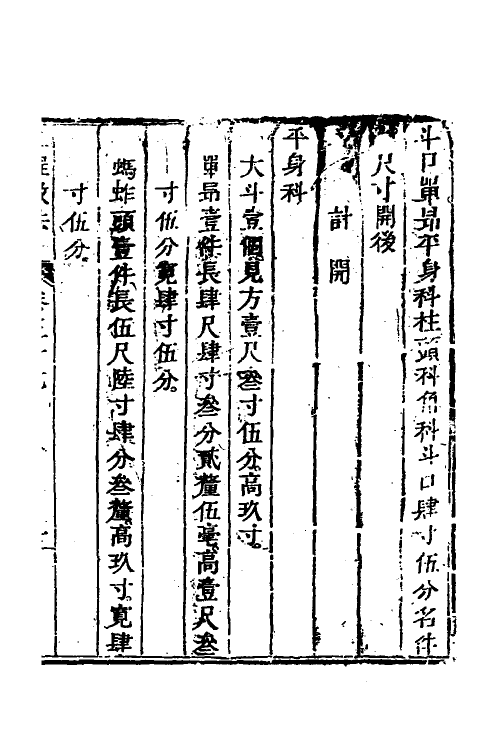 斗口單昂平身科柱頭科角科斗口肆寸伍分名件
尺寸開後
計開
平身科
大斗壹個見方壹尺叁寸伍分高玖寸。
單昂壹件長肆尺肆寸叁分貳釐伍毫高壹尺叁
寸伍分寬肆寸伍分。
螞蚱頭壹件長伍尺陸寸肆分叁釐高玖寸。寬肆
寸伍分。